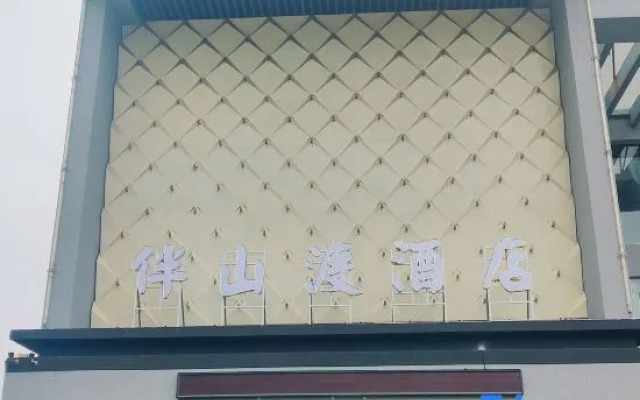 伴山渡酒店